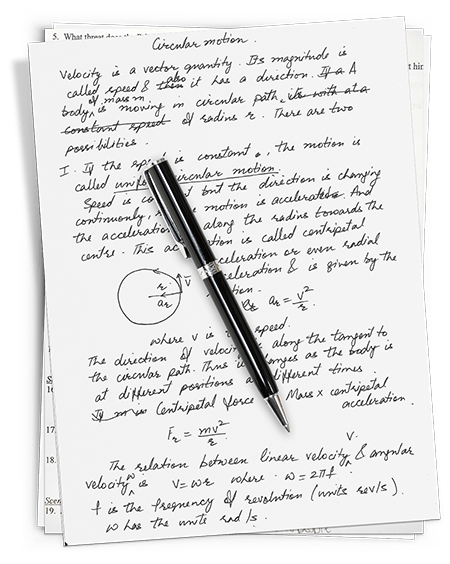 5. What threat does the
Circular motion.
Velocity is a vector quantity. Its magnitude is
called speed & then also it has a direction. If a A
body of mass m is moving in circular path, its with at a
constant speed of radius r. There are two
possibilities.
I. If the is constant, the motion is
called circular motion.
Speed is but the direction is changing
continuously, motion is accelerated. And
the acceleration along the radius towards the
centre. This is called centripetal
or even radial
& is given by the
r v̄
aᵣ
aᵣ = v²/r
where v is speed.
The direction of along the tangent to
the circular path. Thus as the body is
at different positions different times.
If m is Centripetal force Mass x centripetal
acceleration.
Fᵣ = mv²/r
The relation between linear velocity v & angular
velocity w is v = wr where w = 2πf
f is the frequency of revolution (units rev/s).
w has the units rad/s.
17.
18.
19.